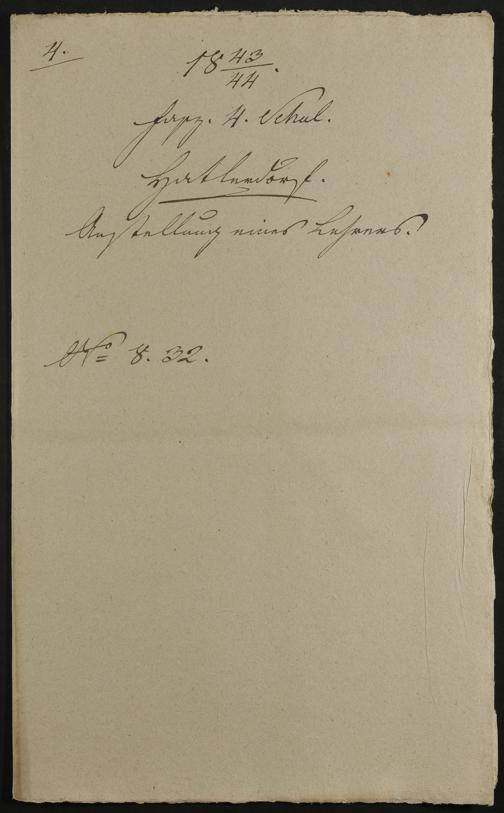 4.
18 43/44.
Fasz. 4. Schul.
Hatlerdorf.
Anstellung eines Lehrers.
No 8. 32.